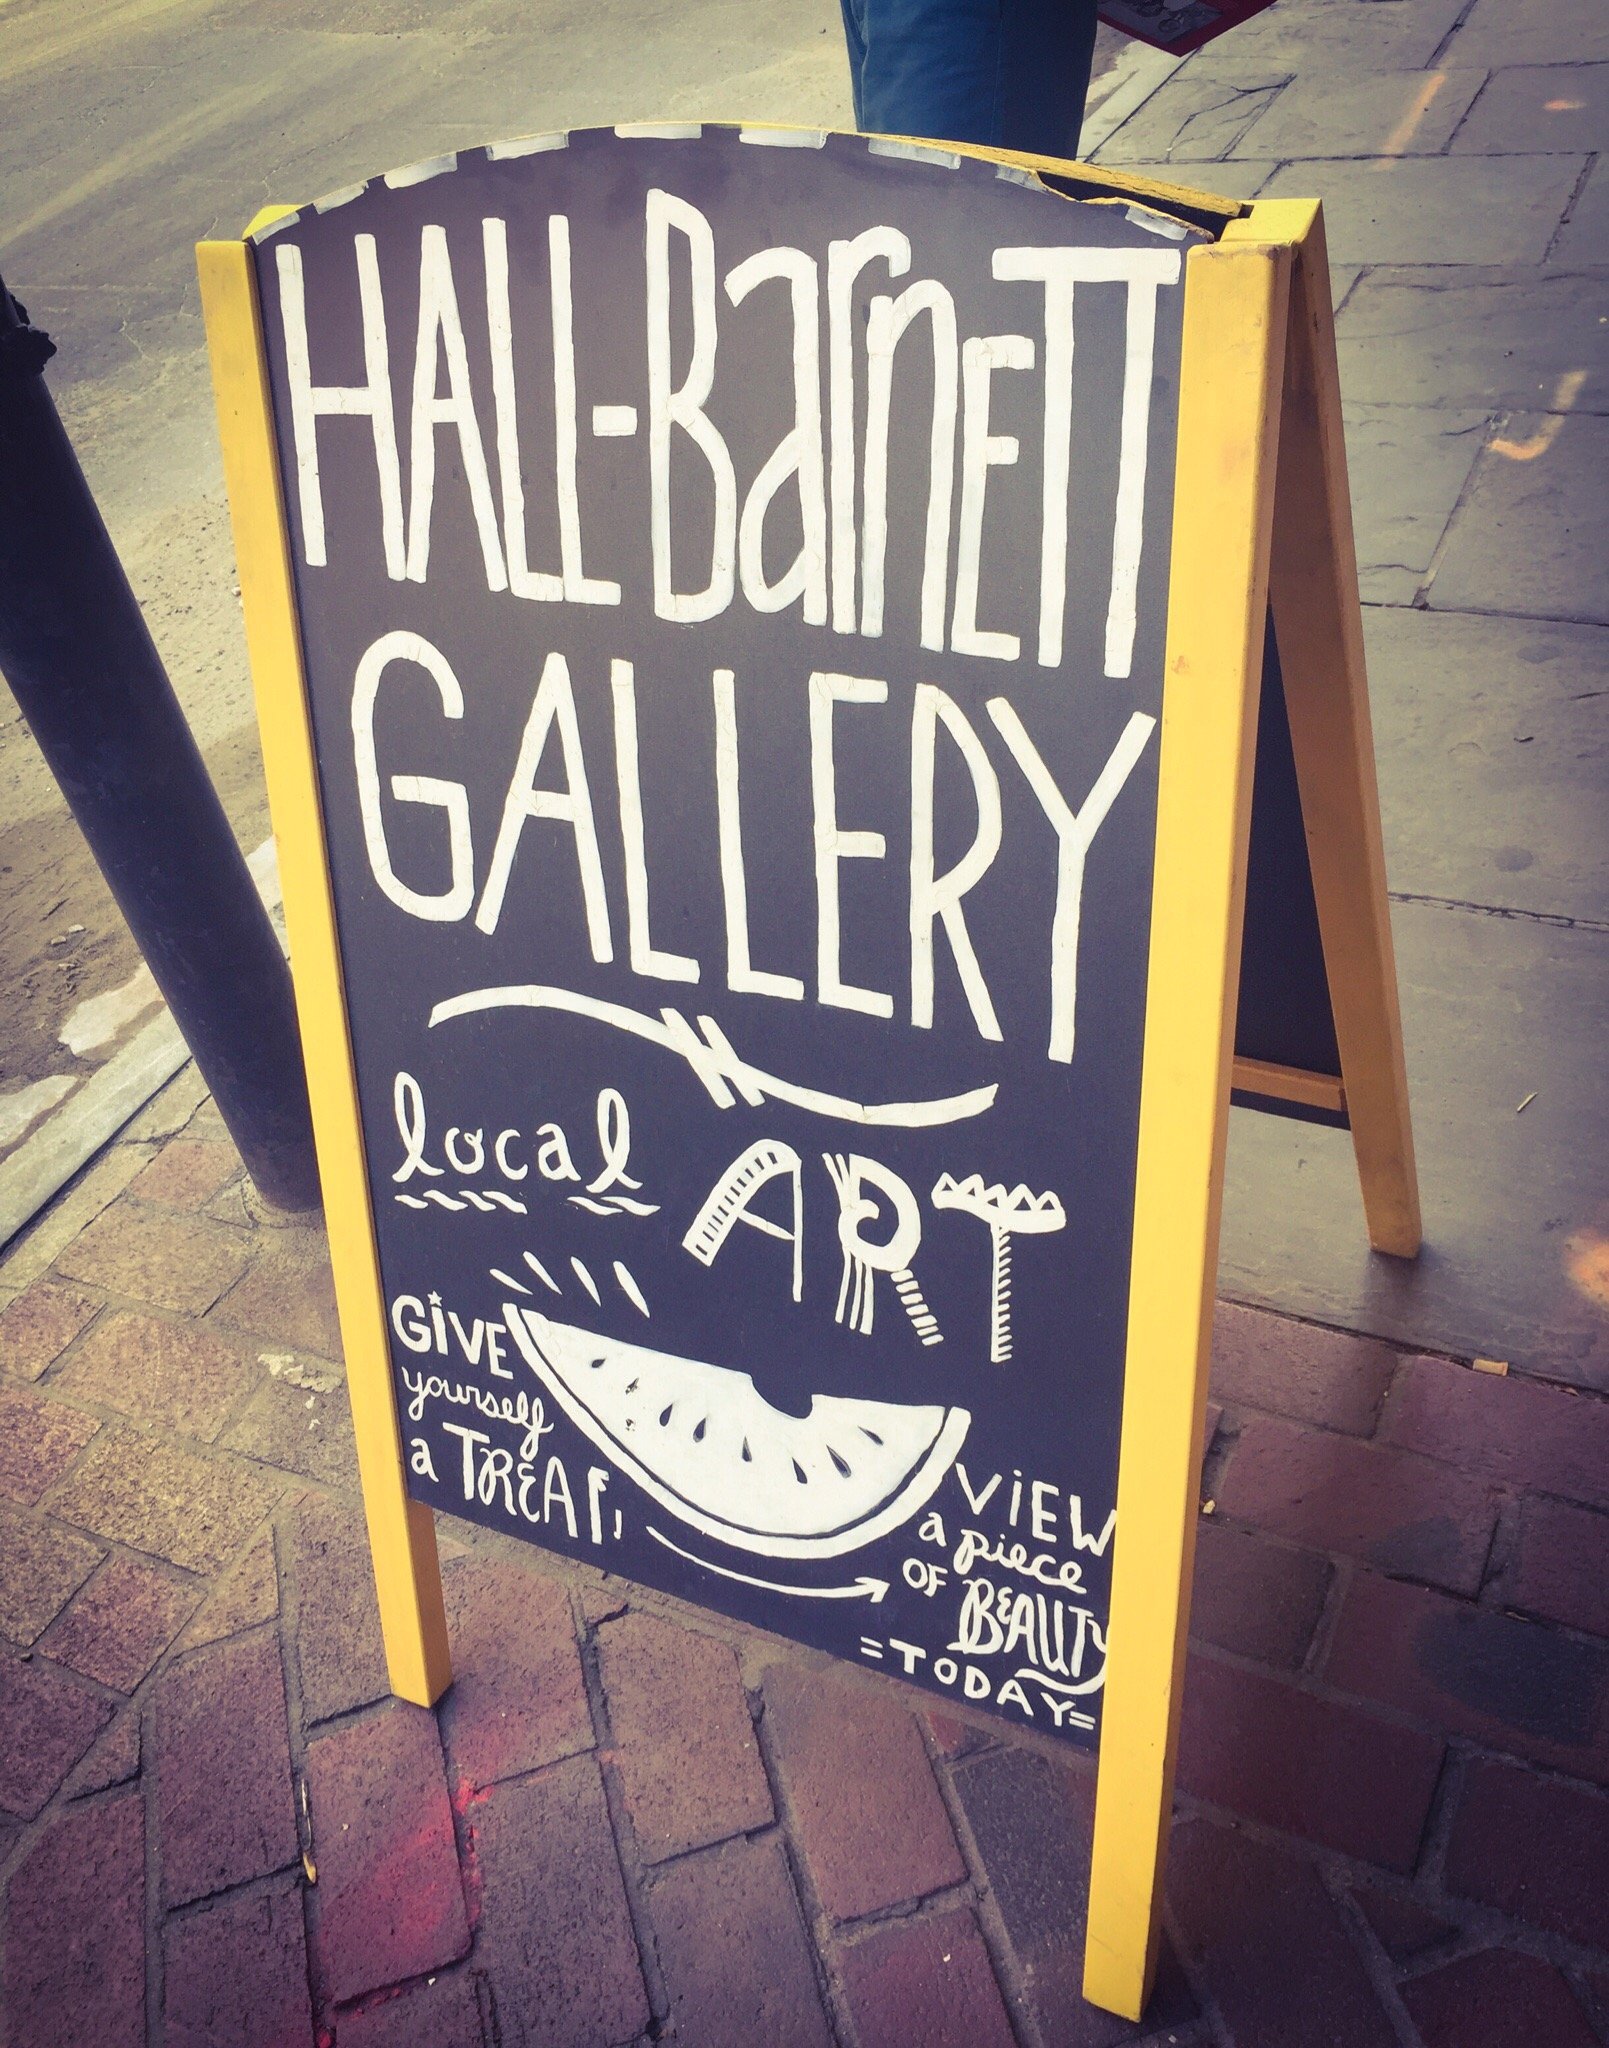 HALL-BarnETT
GALLERY
local ART
GIVE
yourself
a TREAT,
VIEW
a piece
OF BEAUTY
=TODAY=